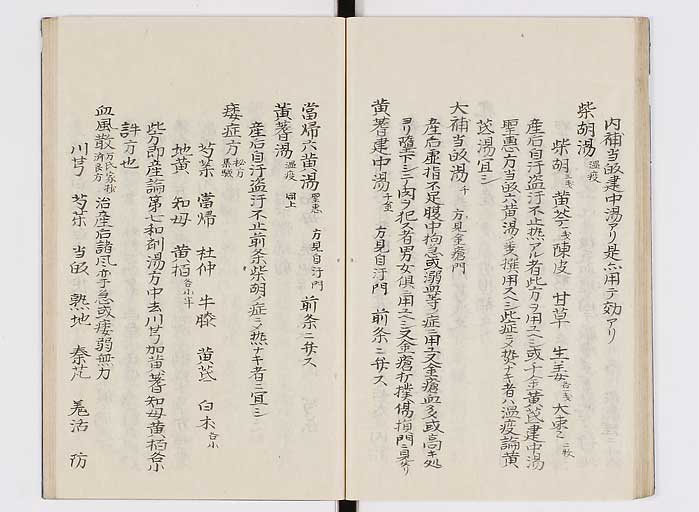 内補当皈建中湯アリ是亦用テ効アリ
柴胡湯 温疫
柴胡 三戔 黄芩 二戔 陳皮 甘草 生姜 各一戔 大棗 二枚
産后自汗盗汗不止热アル者此方ヲ用ユヘシ或千金黄芪建中湯
聖惠方当皈六黄湯ノ類撰用スヘシ此症ニメ热ナキ者ハ温疫論黄
芪湯宜シ
大補当皈湯 千 方見金瘡門
産后虚損不足腹中拘急或溺血等ノ症ニ用又金瘡血多或高キ処
ヨリ墮下シ内ヲ犯ス者男女俱ニ用ユヘシ又金瘡打撲傷損門ニ見タリ
黄蓍建中湯 千金 方見自汗門 前条ニ弁ス
當帰六黄湯 聖惠 方見自汗門 前条ニ弁ス
黄蓍湯 温疫 同上
産后自汗盗汗不止前条柴胡ノ症ニメ热ナキ者ニ宜シ
痿症方 秘方集驗
芍薬 當帰 杜仲 牛膝 黄芪 白朮 各一小
地黄 知母 黄栢 各小半
此方即産論第七和剤湯方中去川芎加黄蓍知母黄栢各小
許方也
血風散 治産后諸風孪急或痿弱無力
川芎 芍薬 当皈 熟地 秦艽 羗活 防